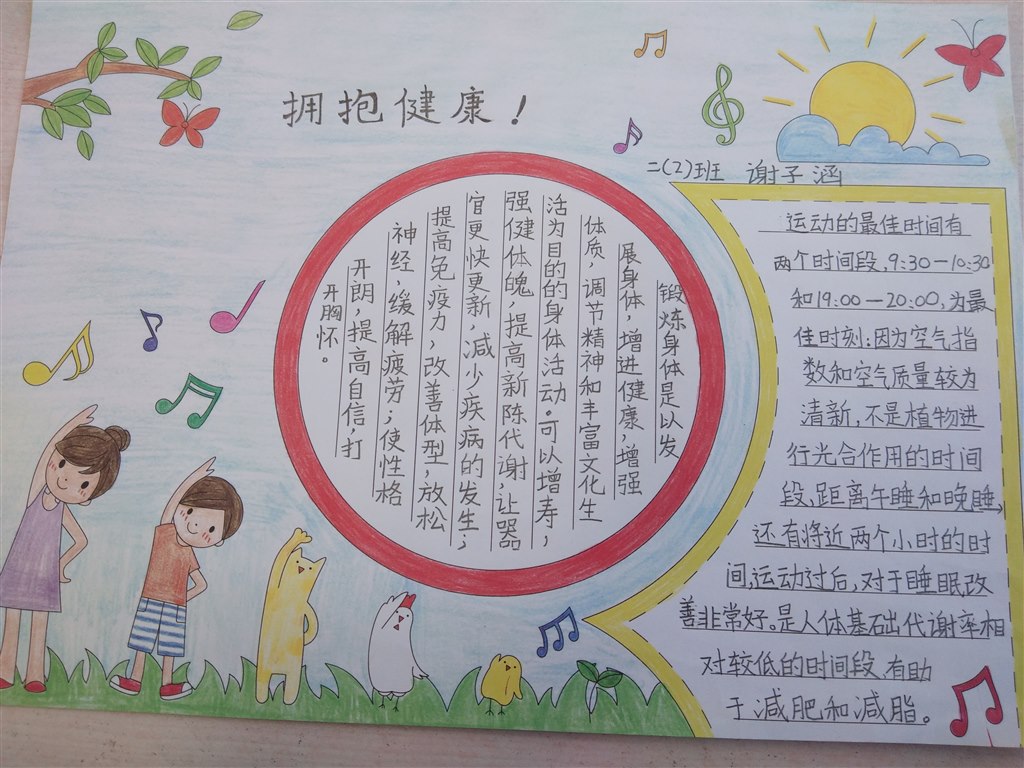 拥抱健康！
二(2)班 谢子涵
锻炼身体是以发
展身体，增进健康，增强
体质，调节精神和丰富文化生
活为目的的身体活动。可以增寿，
强健体魄，提高新陈代谢，让器
官更快更新，减少疾病的发生；
提高免疫力，改善体型，放松
神经，缓解疲劳；使性格
开朗，提高自信，打
开胸怀。
运动的最佳时间有
两个时间段，9:30—10:30
和19:00—20:00，为最
佳时刻；因为空气指
数和空气质量较为
清新，不是植物进
行光合作用的时间
段，距离午睡和晚睡，
还有将近两个小时的时
间，运动过后，对于睡眠改
善非常好。是人体基础代谢率相
对较低的时间段，有助
于减肥和减脂。